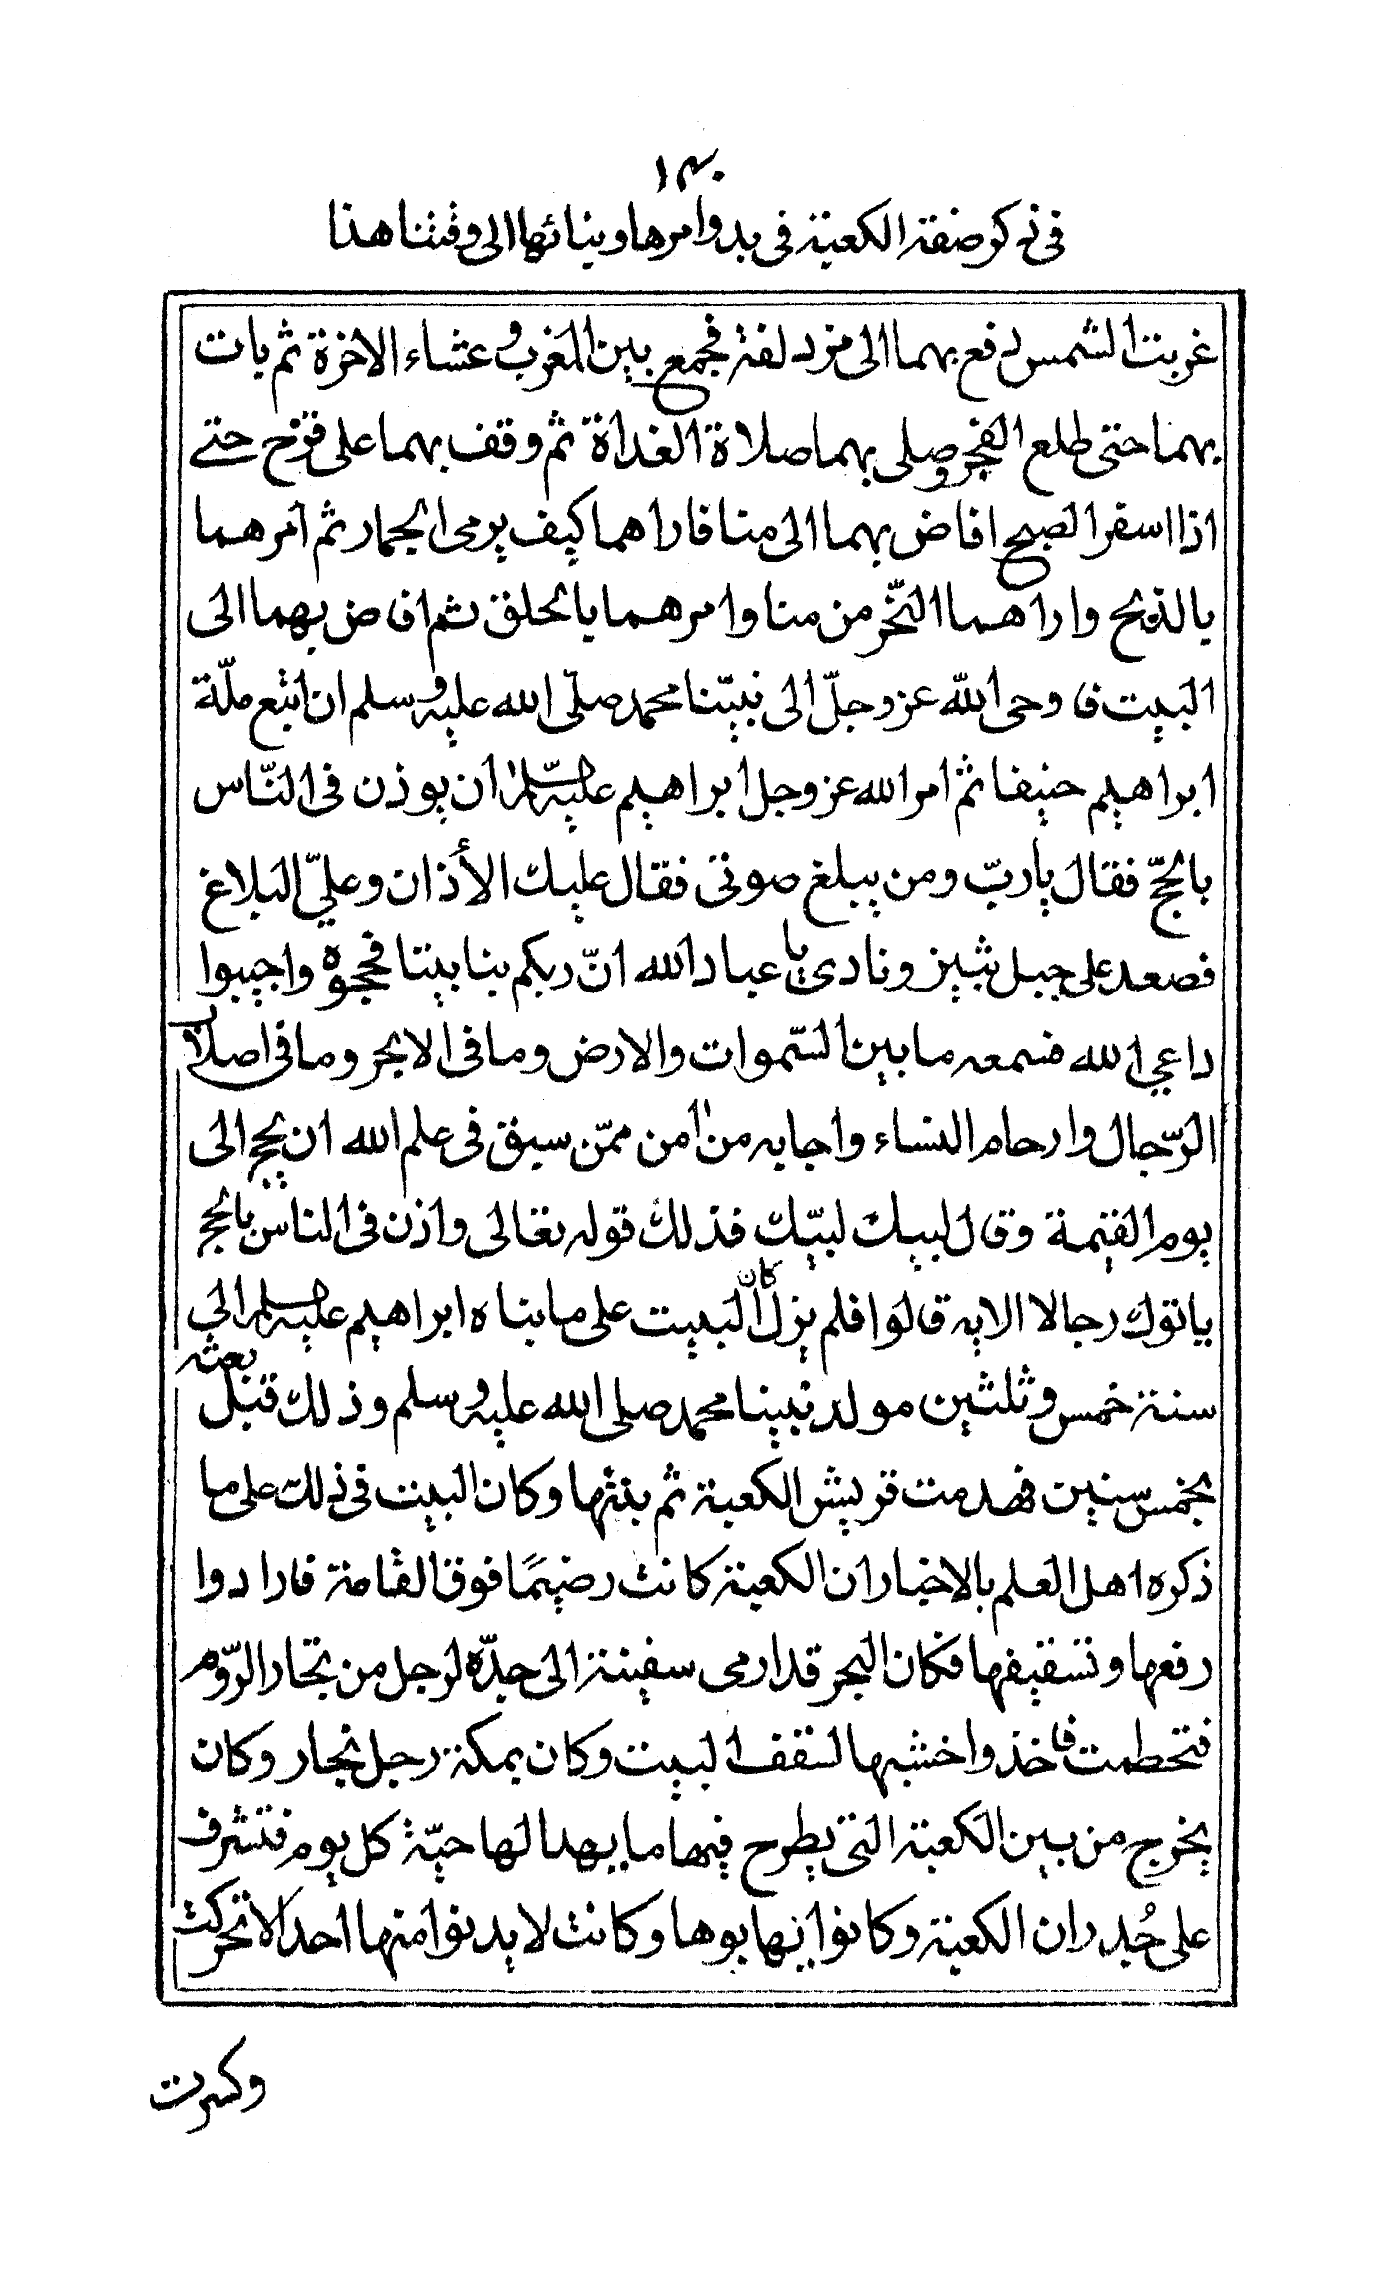 ١٣٠
في ذكر صفة الكعبة في بدو امرها وبنائها الى وقتنا هذا
غربت الشمس دفع بهما الى مزدلفة فجمع بين المغرب وعشاء الاخرة ثم بات
بهما حتى طلع الفجر وصلى بهما صلاة الغداة ثم وقف بهما على قزح حتى
اذا اسفر الصبح افاض بهما الى منا فاراهما كيف يرمى الجمار ثم امرهما
بالذبح واراهما النّحر من منا وامرهما بالحلق ثم افاض بهما الى
البيت فاوحى اللّه عز وجلّ الى نبيّنا محمد صلّى الله عليه وسلم ان اتبع ملّة
ابراهيم حنيفا ثم امر الله عز وجل ابراهيم عليه السّلام ان يوذن في النّاس
بالحجّ فقال يا ربّ ومن يبلغ صوتى فقال عليك الأذان وعليّ البلاغ
فصعد على جبل ثبير ونادى يا عباد الله انّ ربكم بنا بيتا فحجوه واجيبوا
داعي الله فسمعه ما بين السّموات والارض وما في الابحر وما في اصلاب
الرّجال وارحام النساء واجابه من امن ممّن سبق في علم الله ان يحج الى
يوم القيمة وقال لبيك لبيّك فذلك قوله تعالى واذن في الناس بالحج
ياتوك رجالا الايه قالوا فلم يزل كان البيت على ما بناه ابراهيم عليه السلم الى
سنة خمس وثلثين مولد نبينا محمد صلى الله عليه وسلم وذلك قبل بعثه
بخمس سنين فهدمت قريش الكعبة ثم بنتها وكان البيت في ذلك على ما
ذكره اهل العلم بالاخبار ان الكعبة كانت رضيمًا فوق القامة فارادوا
رفعها وتسقيفها فكان البحر قد ارمى سفينة الى جدّه لرجل من تجار الرّوم
فتحطمت فاخذوا خشبها لسقف البيت وكان بمكة رجل نجار وكان
يخرج من بين الكعبة التى يطرح فيها ما يهدا لها حيّة كل يوم فتشرف
على جُدران الكعبة وكانوا يهابوها وكانت لا يدنوا منها احد الا تحركت
وكسرت